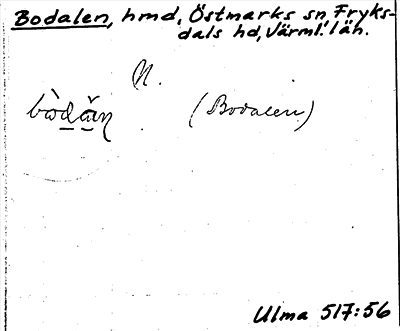 Bodalen, hmd, Östmarks sn, Fryks-
dals hd, Värml. län.
N.
(Bodalen)
Ulma 517:56